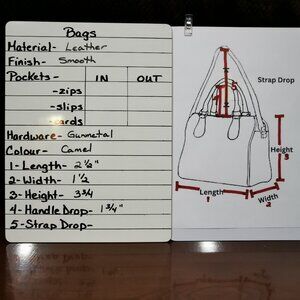 Bags
Material- Leather
Finish- Smooth
Pockets- IN OUT
-zips
-slips
-cards
Hardware- Gunmetal
Colour- Camel
1-Length- 2 ½"
2-Width- 1 ½
3-Height- 3 ¾
4-Handle Drop- 1 ¾"
5-Strap Drop-
Strap Drop
Height
3
Length
1
Width
2